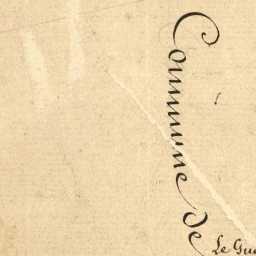 Commune de
Le Gu